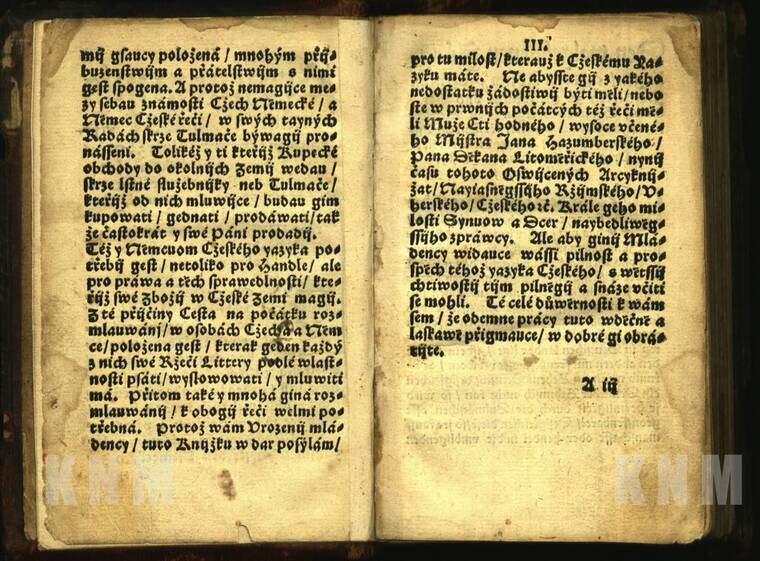 mij gsaucy položená / mnohým přij⸗
buzenstwijm a přátelstwijm s nimi
gest spogena. A protož nemagijce me⸗
zy sebau známosti Czech Německé / a
Němec Czeské řeči / w swých tayných
Radách skrze Tulmače býwagij pro⸗
nássení. Tolikéž y ti kteřijž Kupecké
obchody do okolnijch Zemij wedau /
skrze lstné služebnijky neb Tulmače /
kteřijž od nich mluwijce / budau gim
kupowati / gednati / prodáwati / tak
že častokrát y swé Páni prodadij.
Též y Němcuom Czeského yazyka po⸗
třebij gest / netoliko pro Handle / ale
pro práwa a těch sprawedlnosti / kte⸗
řijž swé Zbožij w Czeské Zemi magij.
Z té přijčiny Cesta na počátku roz⸗
mlauwánj / w osobách Czecha a Něm
ce / položena gest / kterak geden každý
z nich swé Ržeči Littery podlé wlast⸗
nosti psáti / wyslowowati / y mluwiti
má. Přitom také y mnohá giná roz⸗
mlauwánij / k obogij řeči welmi po⸗
třebná. Protož wám Vrozenij mlá⸗
dency / tuto Knijžku w dar posýlám /
III.
pro tu milost / kterauž k Czeskému Ya⸗
zyku máte. Ne abysste gij z yakého
nedostatku žádostiwij býti měli / nebo
ste w prwnijch počátcých též řeči mě⸗
li Muže Cti hodného / wysoce včené⸗
ho Mijstra Jana Hazumberského /
Pana Děkana Litoměřického / nynij
času tohoto Oswijcených Arcyknij⸗
žat / Nayiasněgssijho Ržijmského / V⸗
herského / Czeského ꝛč. Krále geho mi⸗
losti Synuow a Dcer / naybedliwěg⸗
ssijho zpráwcy. Ale aby ginij Mlá⸗
dency widauce wássi pilnost a pro⸗
spěch téhož yazyka Czeského / s wětssij
chtiwostij tijm pilněgij a snáze včiti
se mohli. Té celé důwěrnosti k wám
sem / že odemne prácy tuto wděčně a
laskawě přigmauce / w dobré gi obrá⸗
tijte.
A iij
KNM
KNM